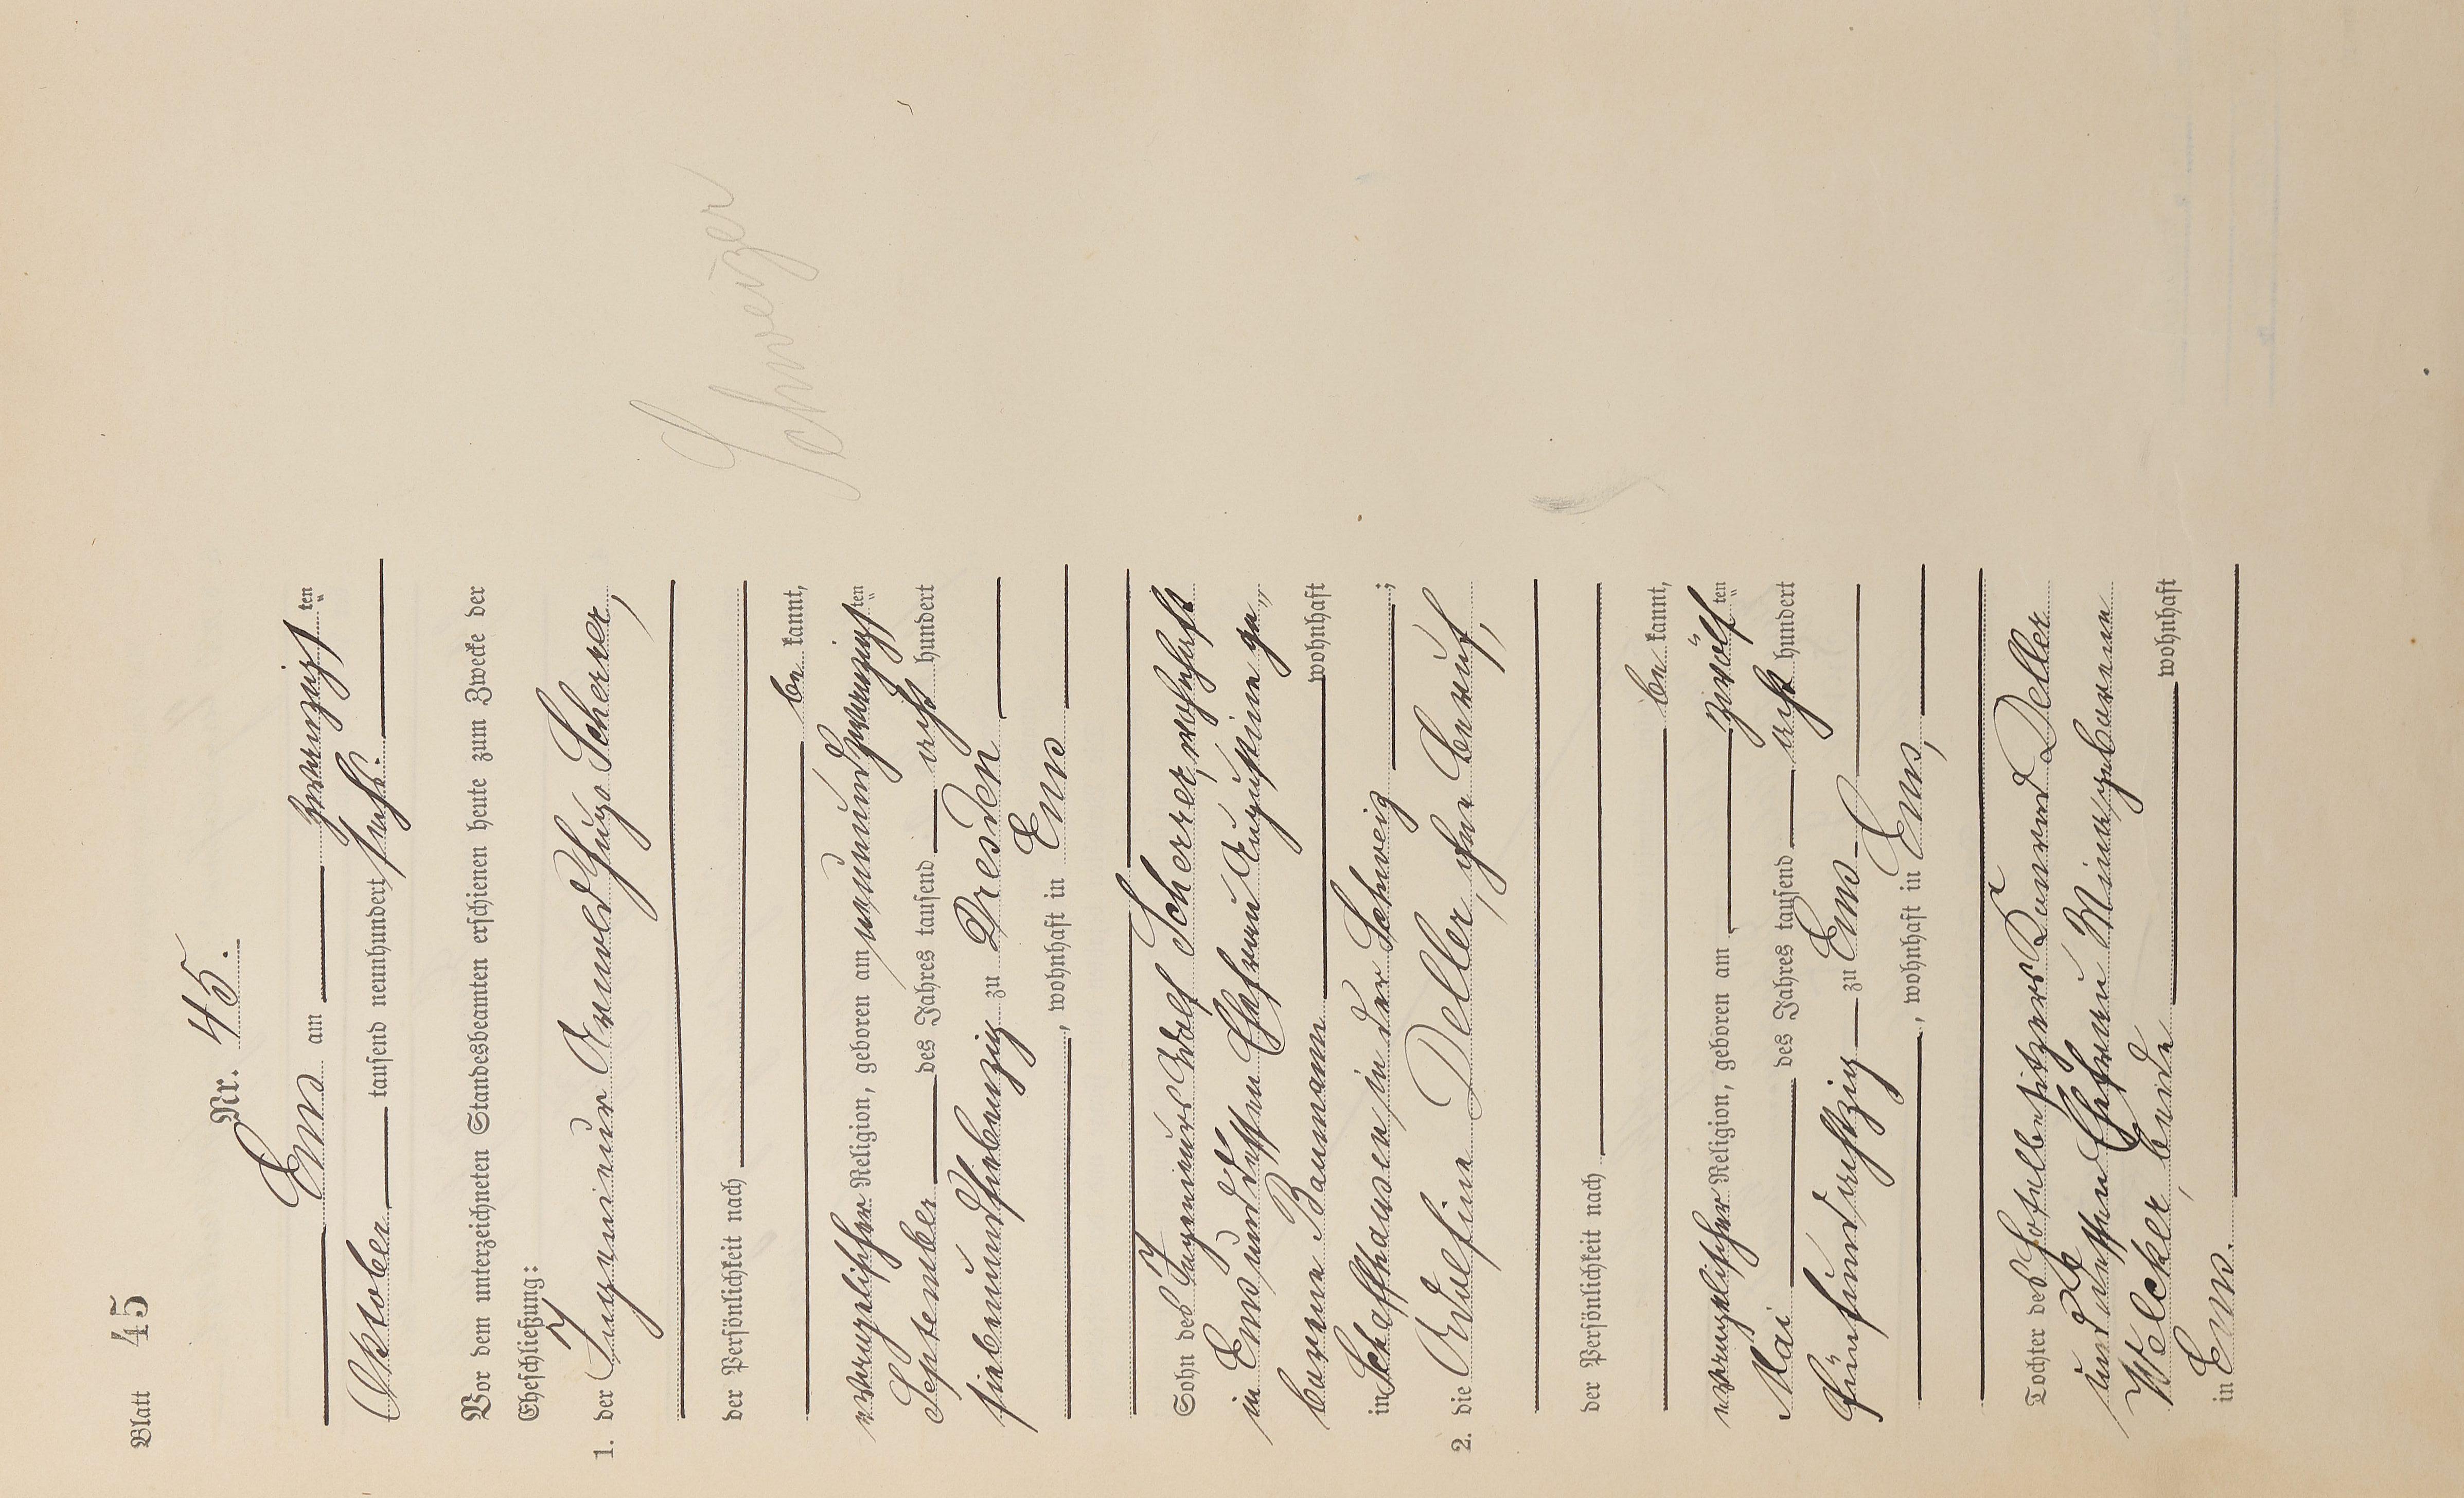 Blatt 45
Nr. 45.
Ems am zwanzigsten
Oktober tausend neunhundert sechs.
Vor dem unterzeichneten Standesbeamten erschienen heute zum Zwecke der
Eheschließung:
1. der Ingenieur Arnold Hugo Scherrer,
der Persönlichkeit nach
be kannt,
evangelischer Religion, geboren am neunundzwanzigsten
September des Jahres tausend acht hundert
siebenundsiebenzig zu Dresden
, wohnhaft in Ems
Schweizer
Sohn des Ingenieurs Adolf Scherrer, wohnhaft
in Ems und dessen Ehefrau Augustine ge„
borene Baumann wohnhaft
in Schaffhausen in der Schweiz ;
2. die Adolfine Deller, ohne Beruf,
der Persönlichkeit nach
be kannt,
evangelischer Religion, geboren am zwölften
Mai des Jahres tausend acht hundert
fünfundachtzig zu Ems
, wohnhaft in Ems,
Tochter des Hotelbesitzers Konrad Deller
und dessen Ehefrau Mina, geborene
Welcker, beide wohnhaft
in Ems.